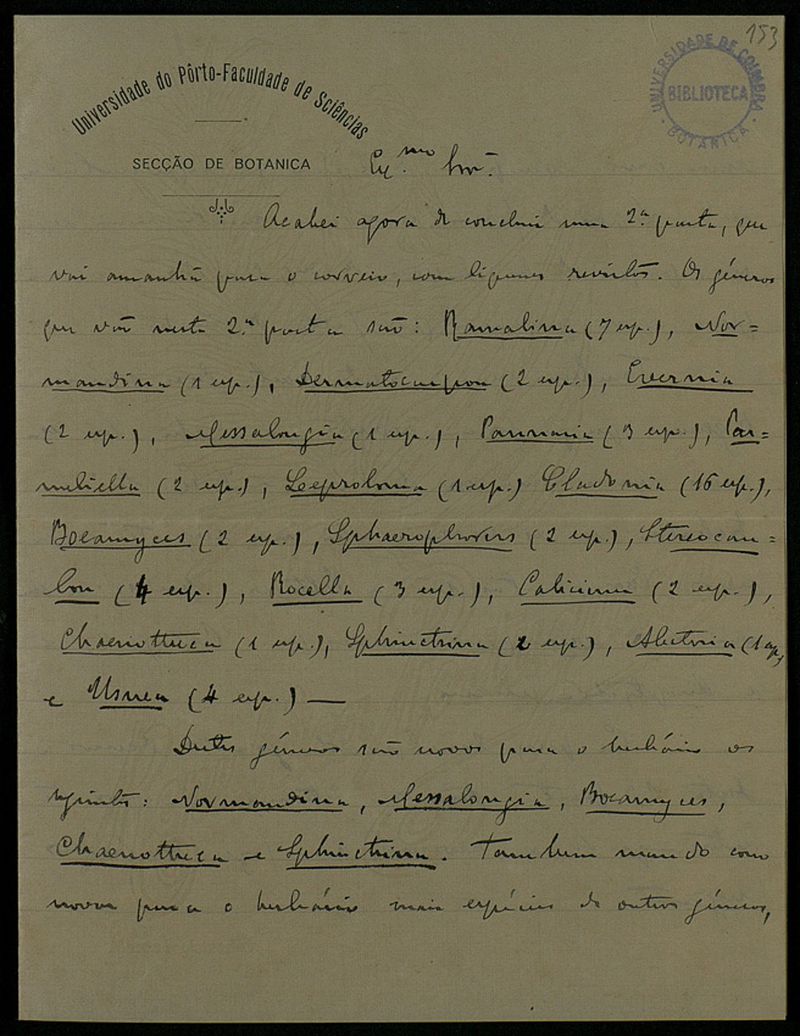 153
UNIVERSIDADE DE COIMBRA
BIBLIOTECA
BOTANICA
Universidade do Pôrto-Faculdade de Sciências
SECÇÃO DE BOTANICA
Ex.mo Snr.
Acabei agora de concluir uma 2.ª pasta, que
vai amanhã para o correio, com liquenes revistos. Os géneros
que vão nesta 2.ª pasta são: Ramalina (7 esp.), Nor=
mandina (1 esp.), Dermatocarpon (2 esp.), Evernia
(2 esp.), Massalongia (1 esp.), Pannaria (3 esp.), Par=
meliella (2 esp.), Leproloma (1 esp.) Cladonia (16 esp.),
Boeamyces (2 esp.), Sphaerophorus (2 esp.), Stereocau=
lon (4 esp.), Rocella (3 esp.), Calicium (2 esp.),
Chaenotheca (1 esp.), Sphinctrina (2 esp.), Alectoria (1 esp.)
e Usnea (4 esp.) —
Destes géneros são novos para o herbário os
seguintes: Normandina, Massalongia, Boeamyces,
Chaenotheca e Sphinctrina. Tambem mando como
novas para o herbário mais espécies de outros géneros,